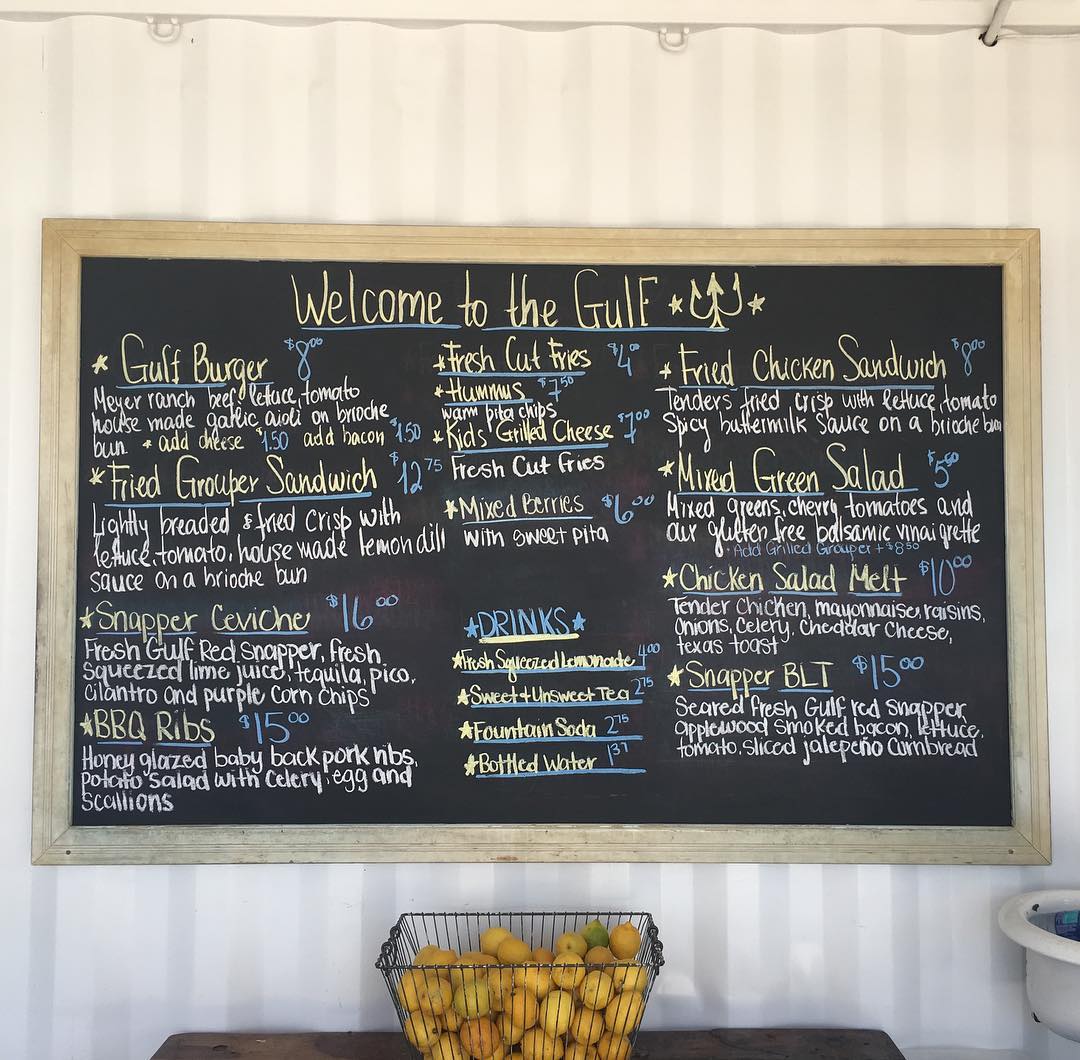 Welcome to the Gulf
Gulf Burger $8.00
Meyer ranch beef, lettuce, tomato
house made garlic aioli on brioche
bun * add cheese $1.50 add bacon $1.50
Fried Grouper Sandwich $12.75
Lightly breaded & fried crisp with
lettuce, tomato, house made lemon dill
sauce on a brioche bun
Snapper Ceviche $16.00
Fresh Gulf Red Snapper, fresh
squeezed lime juice, tequila, pico,
cilantro and purple corn chips
BBQ Ribs $15.00
Honey glazed baby back pork ribs,
potato salad with celery, egg and
scallions
Fresh Cut Fries $4.00
Hummus $7.50
warm pita chips
Kids' Grilled Cheese $7.00
Fresh Cut Fries
Mixed Berries $6.00
with sweet pita
DRINKS
Fresh Squeezed Lemonade 4.00
Sweet + Unsweet Tea 2.75
Fountain Soda 2.75
Bottled Water 1.37
Fried Chicken Sandwich $8.00
Tenders fried crisp with lettuce, tomato
Spicy buttermilk sauce on a brioche bun
Mixed Green Salad $5.50
Mixed greens, cherry tomatoes and
our gluten free balsamic vinaigrette
• Add Grilled Grouper + $8.50
Chicken Salad Melt $10.00
Tender Chicken, mayonnaise, raisins,
onions, celery, cheddar cheese,
texas toast
Snapper BLT $15.00
Seared fresh Gulf red snapper
applewood smoked bacon, lettuce,
tomato, sliced jalepeño cornbread